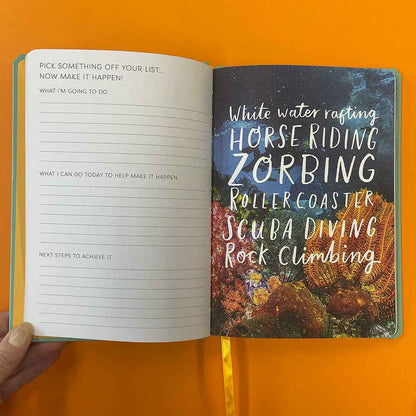 PICK SOMETHING OFF YOUR LIST...
NOW MAKE IT HAPPEN!
WHAT I'M GOING TO DO
WHAT I CAN DO TODAY TO HELP MAKE IT HAPPEN
NEXT STEPS TO ACHIEVE IT
White water rafting
HORSE RIDING
ZORBING
ROLLERCOASTER
SCUBA DIVING
Rock Climbing